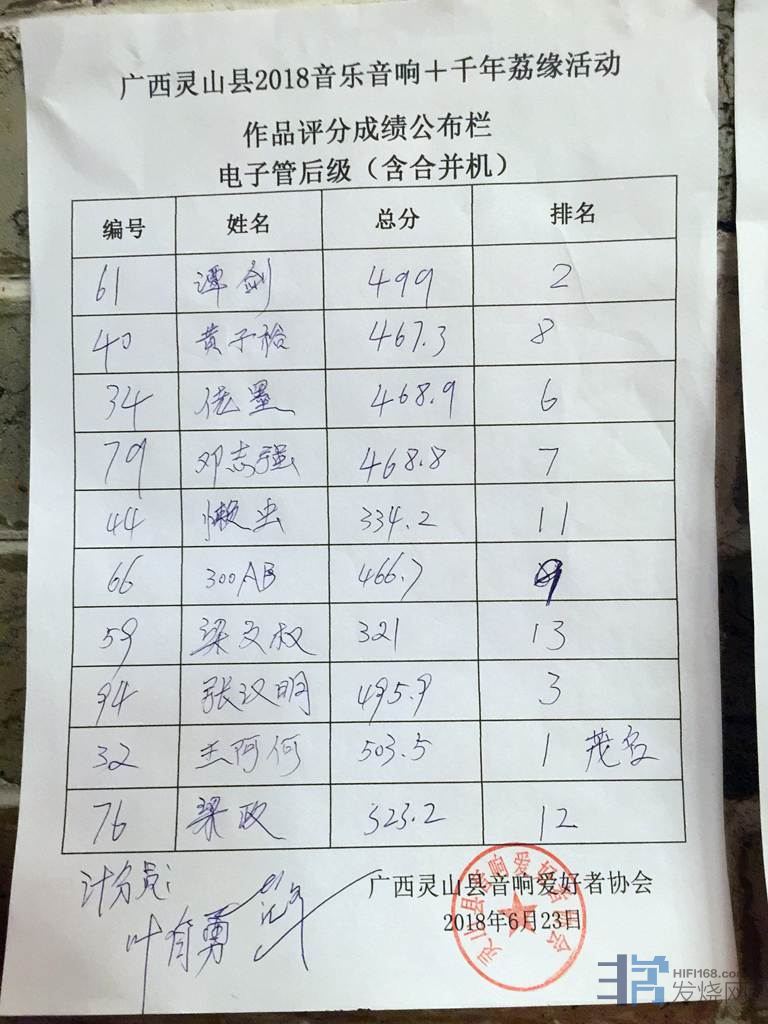 广西灵山县2018音乐音响+千年荔缘活动
作品评分成绩公布栏
电子管后级（含合并机）
编号 姓名 总分 排名
61 谭剑 499 2
40 黄子裕 467.3 8
34 佬墨 468.9 6
79 邓志强 468.8 7
44 懒虫 334.2 11
66 300AB 466.7 9
59 梁文权 321 13
94 张汉明 495.9 3
32 王阿何 503.5 1 茂名
76 梁政 323.2 12
计分员：
叶有勇
广西灵山县音响爱好者协会
2018年6月23日
灵山县音响爱好者协会
HIFI168.com
发烧网